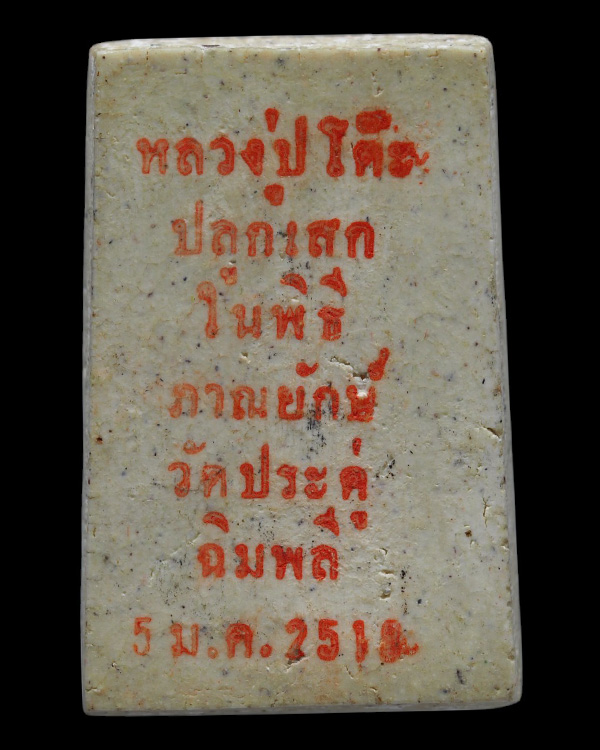 หลวงปู่โต๊ะ
ปลุกเสก
ในพิธี
ภาณยักษ์
วัดประดู่
ฉิมพลี
5 ม.ค.